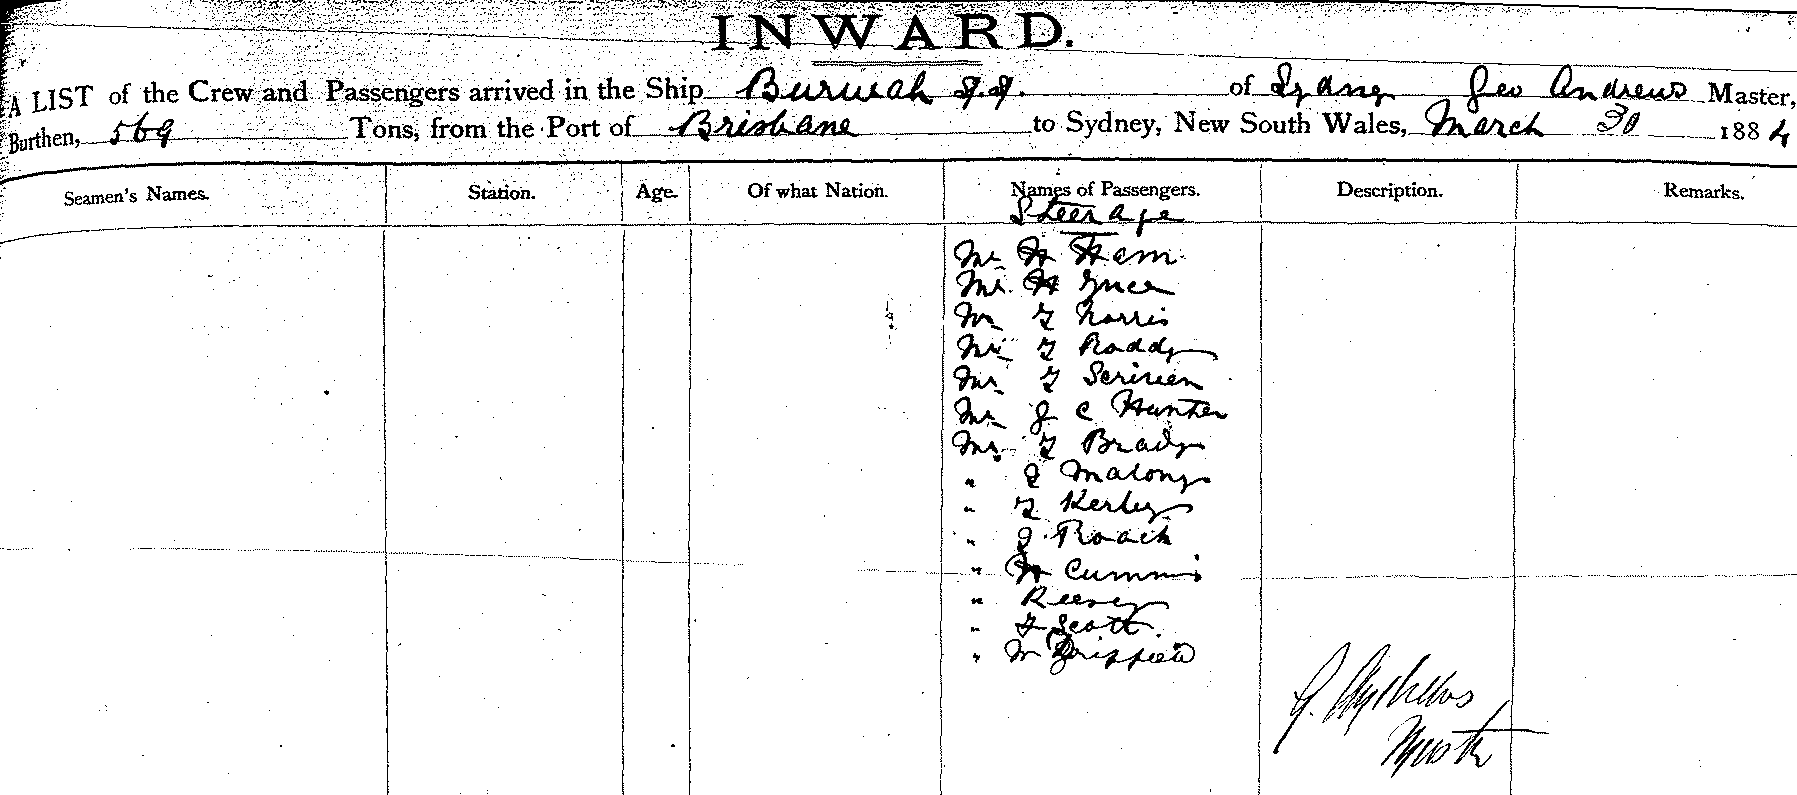 INWARD.
A LIST of the Crew and Passengers arrived in the Ship Burwah S.S. of Sydney Geo Andrews Master,
Burthen, 569 Tons, from the Port of Brisbane to Sydney, New South Wales, March 30 1884
Seamen's Names. Station. Age. Of what Nation. Names of Passengers. Description. Remarks.
Steerage
Mr H Ham
Mr H
Mr T Norris
Mr T Roddy
Mr T Scriven
Mr J C Hunter
Mr T Brady
" J Malony
" T Kerley
" J Roach
" H Cummins
" Reesey
" T Scott
" W
G. Andrews
Master